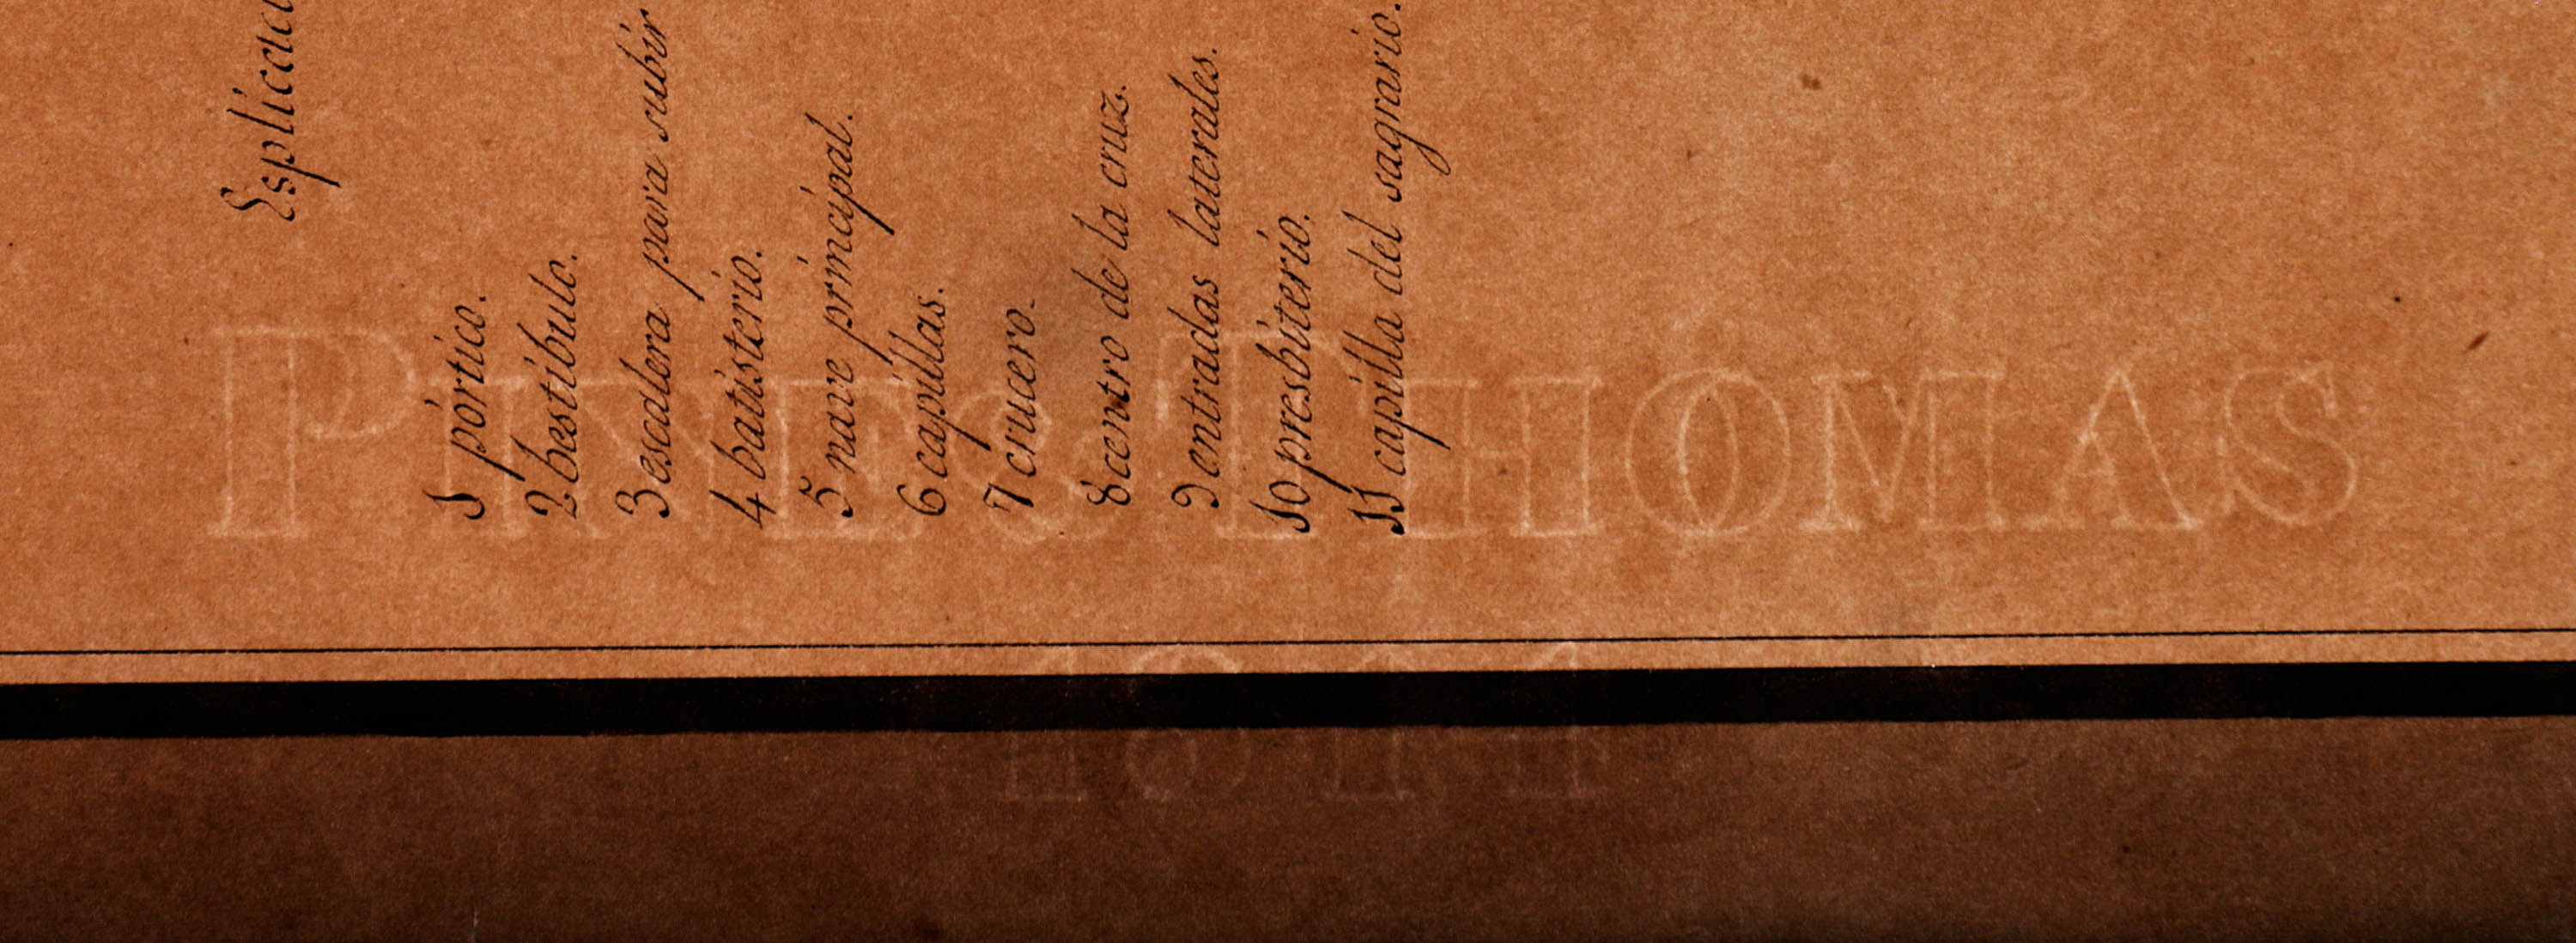 Esplicac
1 pórtico.
2 bestíbulo.
3 escalera para subir
4 batisterio.
5 nave principal.
6 capillas.
7 crucero.
8 centro de la cruz.
9 entradas laterales.
10 presbiterio.
11 capilla del sagrario.
PINE & THOMAS